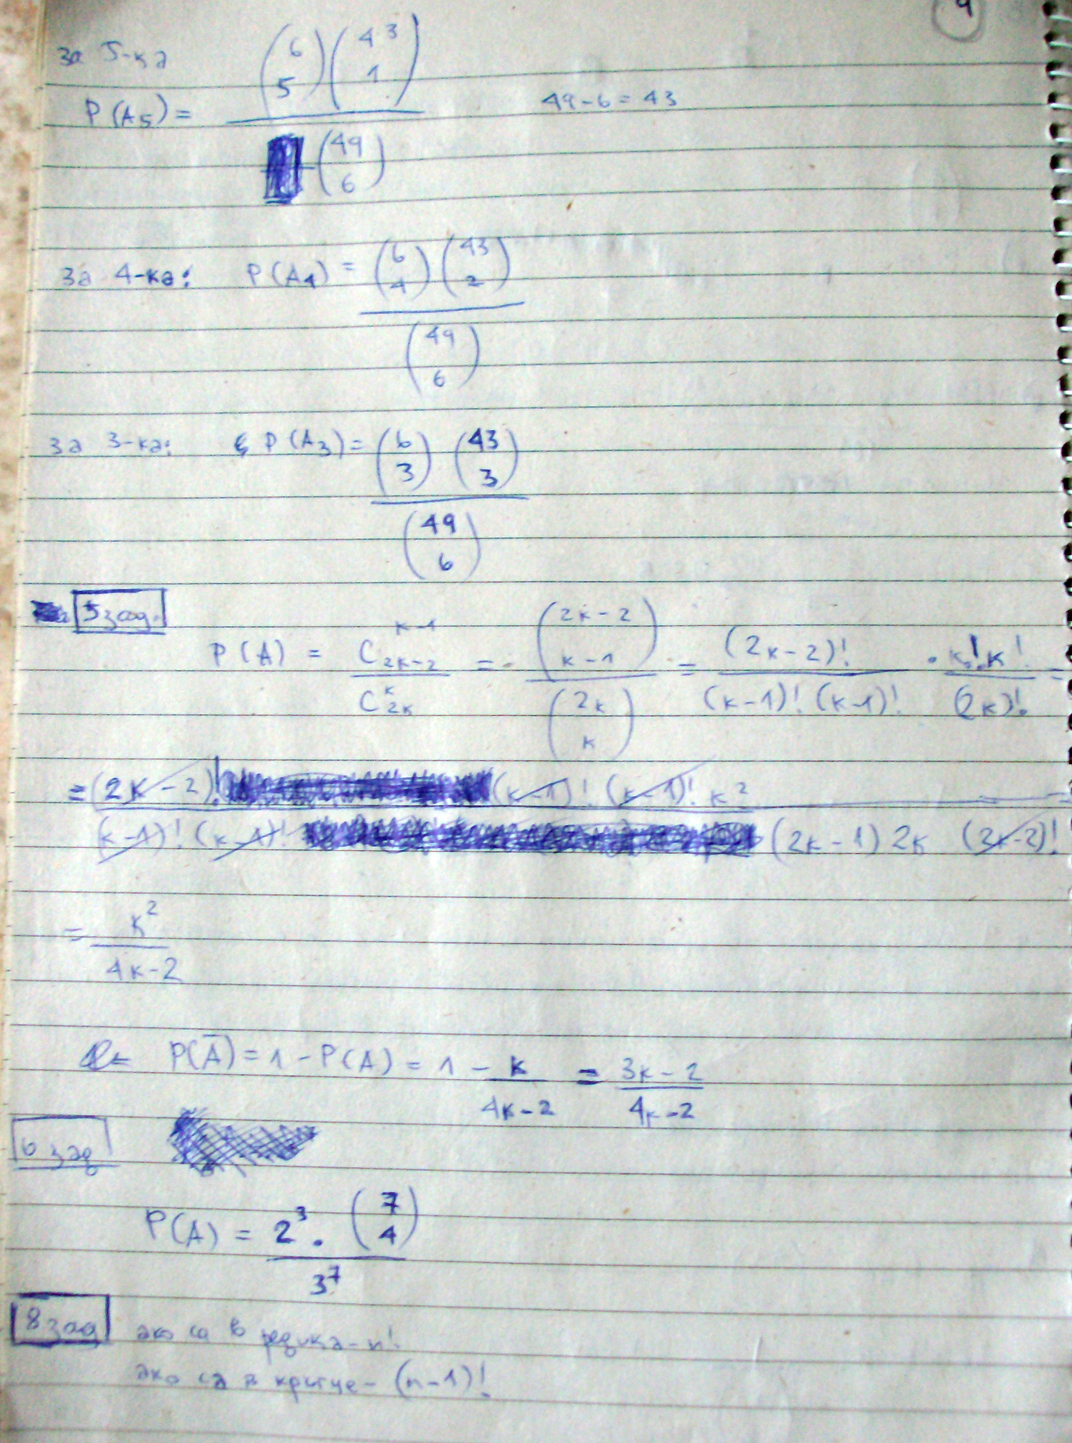 9
за 5-ка
P(A₅) = \frac{\binom{6}{5}\binom{43}{1}}{\binom{49}{6}}    49-6=43
за 4-ка: P(A₄) = \frac{\binom{6}{4}\binom{43}{2}}{\binom{49}{6}}
за 3-ка: P(A₃) = \frac{\binom{6}{3}\binom{43}{3}}{\binom{49}{6}}
5 зад.
P(A) = \frac{C_{2k-2}^{k-1}}{C_{2k}^{k}} = \frac{\binom{2k-2}{k-1}}{\binom{2k}{k}} = \frac{(2k-2)!}{(k-1)!(k-1)!} . \frac{k!k!}{(2k)!} =
= \frac{(2k-2)! (k-1)! (k-1)! k²}{(k-1)! (k-1)! (2k-1) 2k (2k-2)!}
= \frac{k²}{4k-2}
P(Ā) = 1 - P(A) = 1 - \frac{k}{4k-2} = \frac{3k-2}{4k-2}
6 зад
P(A) = \frac{2³ . \binom{7}{4}}{3⁷}
8 зад
ако са в редица - n!
ако са в кръгче - (n-1)!